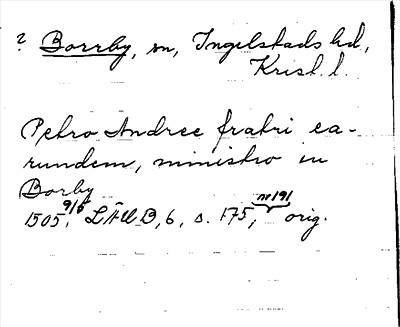 ? Borrby, sn, Ingelstads hd,
Krist. l.
Petro Andree fratri ea-
rundem, ministro in
Borby
1505 9/5. LÄU D, 6, s. 175, nr 191 orig.